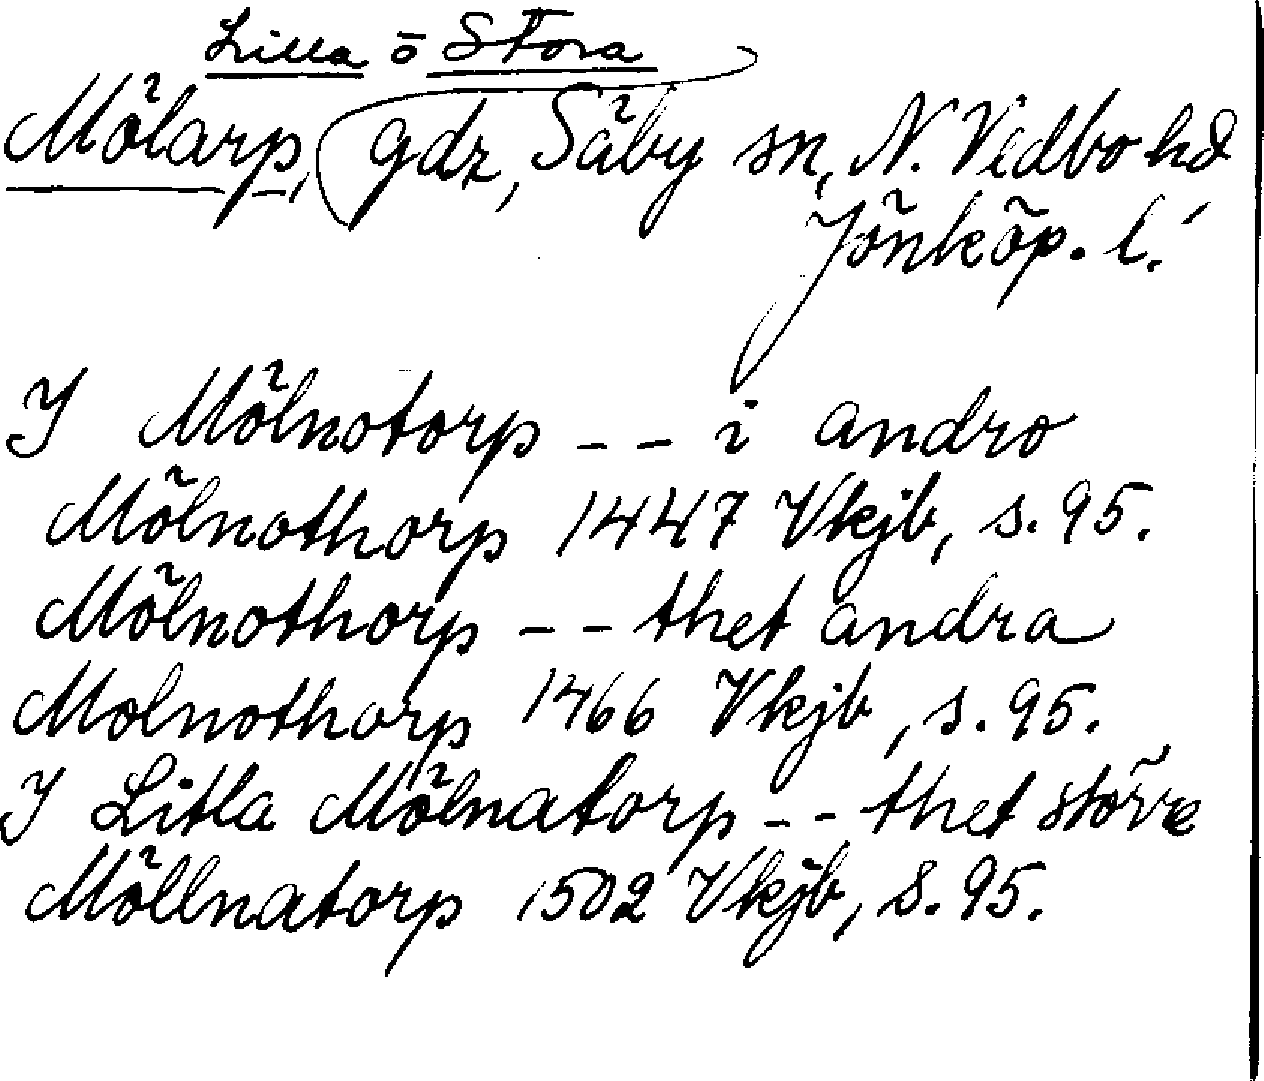 Lilla o Stora
Mölarp, gdr, Säby sn, N. Vedbo hd
Jönköp. l.
I Mölnotorp - - i andro
Mölnothorp 1447 Vkjb, s. 95.
Mölnothorp - - thet andra
Molnothorp 1466 Vkjb, s. 95.
I Litla Mölnatorp - - thet större
Möllnatorp 1502 Vkjb, s. 95.